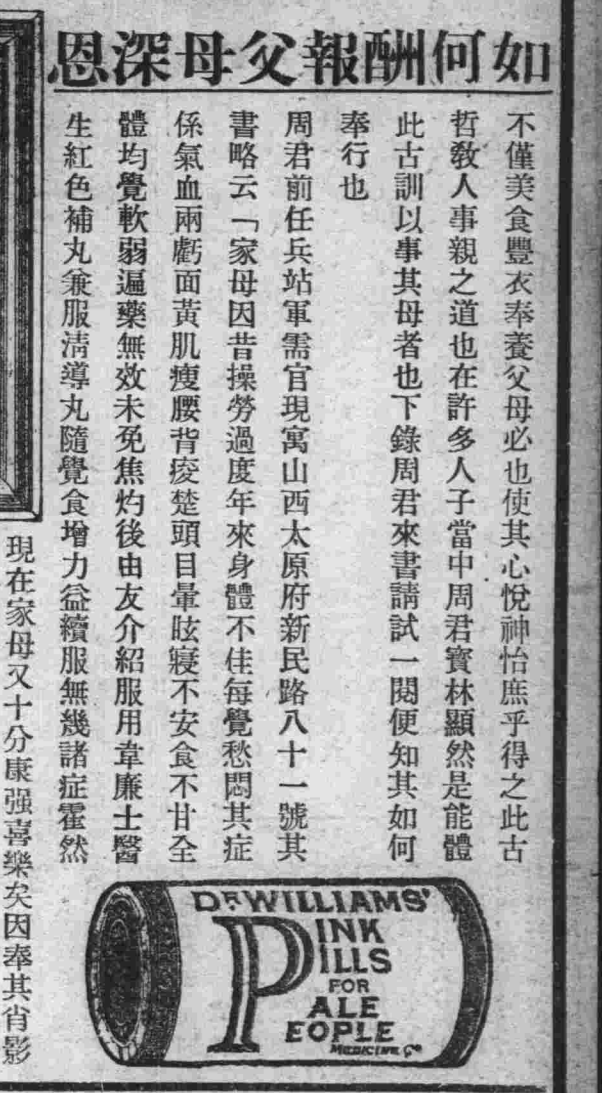 如何酬報父母深恩
不僅美食豐衣奉養父母必也使其心悅神怡庶乎得之此古
哲教人事親之道也在許多人子當中周君寶林顯然是能體
此古訓以事其母者也下錄周君來書請試一閱便知其如何
奉行也
周君前任兵站軍需官現寓山西太原府新民路八十一號其
書略云「家母因昔操勞過度年來身體不佳每覺愁悶其症
係氣血兩虧面黃肌瘦腰背痠楚頭目暈眩寢不安食不甘全
體均覺軟弱遍藥無效未免焦灼後由友介紹服用韋廉士醫
生紅色補丸兼服清導丸隨覺食增力益續服無幾諸症霍然
現在家母又十分康强喜樂矣因奉其肖影
DR WILLIAMS'
PINK
PILLS
FOR
PALE
PEOPLE
MEDICINE Co